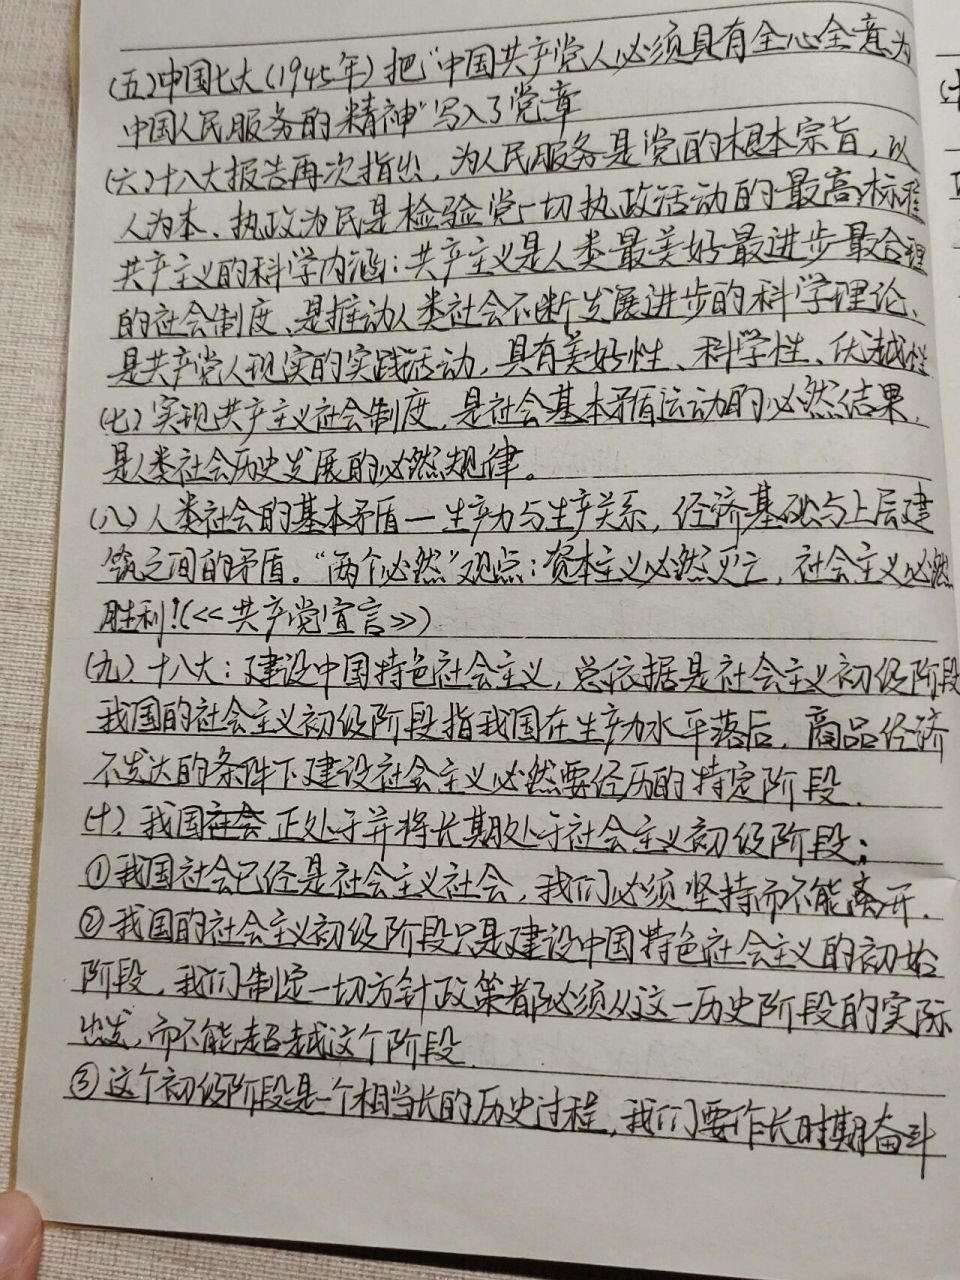 (五)中国七大(1945年)把“中国共产党人必须具有全心全意为
中国人民服务的精神”写入了党章
(六)十八大报告再次指出，为人民服务是党的根本宗旨，以
人为本、执政为民是检验党一切执政活动的最高标准
共产主义的科学内涵：共产主义是人类最美好最进步最合理
的社会制度、是推动人类社会不断发展进步的科学理论、
是共产党人现实的实践活动，具有美好性、科学性、优越性
(七)实现共产主义社会制度，是社会基本矛盾运动的必然结果，
是人类社会历史发展的必然规律。
(八)人类社会的基本矛盾—生产力与生产关系，经济基础与上层建
筑之间的矛盾。“两个必然”观点：资本主义必然灭亡，社会主义必然
胜利！(<<共产党宣言>>)
(九)十八大：建设中国特色社会主义，总依据是社会主义初级阶段
我国的社会主义初级阶段指我国在生产力水平落后，商品经济
不发达的条件下建设社会主义必然要经历的特定阶段.
(十)我国社会正处于并将长期处于社会主义初级阶段：
①我国社会已经是社会主义社会，我们必须坚持而不能离开.
②我国的社会主义初级阶段只是建设中国特色社会主义的初始
阶段，我们制定一切方针政策都必须从这一历史阶段的实际
出发，而不能超越这个阶段.
③这个初级阶段是一个相当长的历史过程，我们要作长时期奋斗